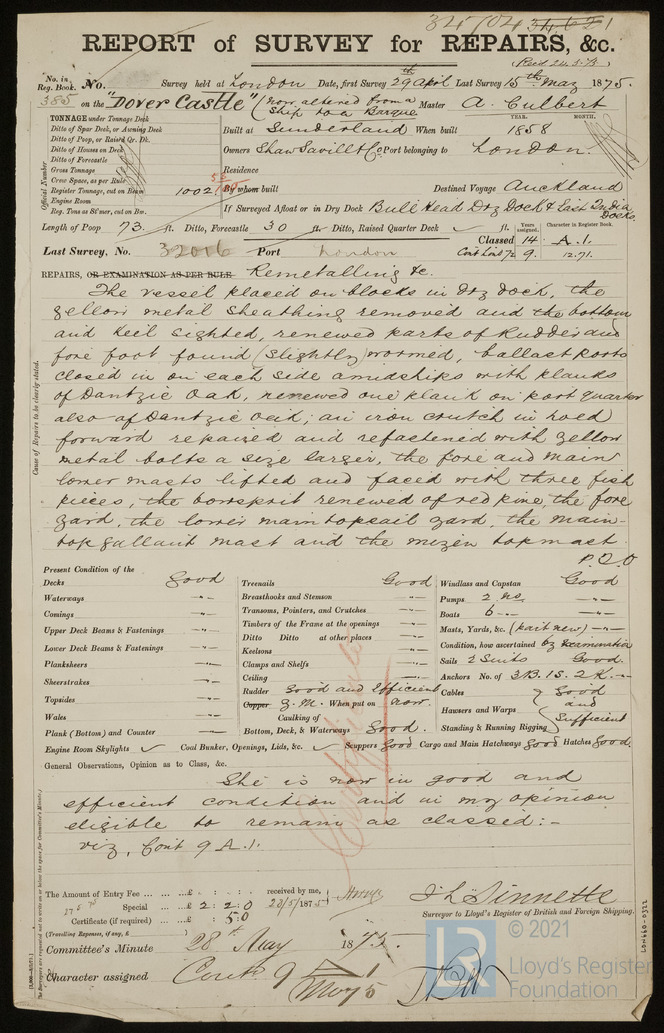 34704 34621
REPORT of SURVEY for REPAIRS, &c.
No. in Reg. Book. No. Survey held at London Date, first Survey 29th April Last Survey 15th May 1875.
385 on the "Dover Castle" (now altered from a Ship to a Barque Master A. Culbert
TONNAGE under Tonnage Deck
Ditto of Spar Deck, or Awning Deck
Ditto of Poop, or Raised Qr. Dk.
Ditto of Houses on Deck
Ditto of Forecastle
Gross Tonnage
Crew Space, as per Rule
Register Tonnage, cut on Beam 1002
Engine Room
Reg. Tons as St'mer, cut on Bm.
Official Number
YEAR. MONTH.
Built at Sunderland When built 1858
Owners Shaw Savill & Co Port belonging to London
Residence
By whom built Destined Voyage Auckland
If Surveyed Afloat or in Dry Dock Bull Head Dry Dock & East India Docks.
Length of Poop 73. ft. Ditto, Forecastle 30 ft. Ditto, Raised Quarter Deck ft.
Years assigned. Character in Register Book.
Classed 14 A.1.
Last Survey, No. 32016 Port London Cont Lond 72 9. 12.71.
REPAIRS, OR EXAMINATION AS PER RULE Remetalling &c.
The vessel placed on blocks in dry dock, the
yellow metal sheathing removed and the bottom
and keil sighted, renewed parts of Rudder and
fore foot found (slightly) wormed, ballast ports
closed in on each side amidships with planks
of Dantzic Oak, renewed one plank on port quarter
also of Dantzic Oak; an iron crutch in hold
forward repaired and refactened with yellow
metal bolts a size larger, the fore and main
lower masts lifted and faced with three fish
pieces, the bowsprit renewed of red pine, the fore
yard, the lower main topsail yard, the main-
top gallant mast and the mizen topmast.
P.T.O
Cause of Repairs to be clearly stated.
Present Condition of the
Decks Good
Waterways "
Comings "
Upper Deck Beams & Fastenings "
Lower Deck Beams & Fastenings "
Planksheers "
Sheerstrakes "
Topsides "
Wales "
Plank (Bottom) and Counter "
Treenails Good
Breasthooks and Stemson "
Transoms, Pointers, and Crutches "
Timbers of the Frame at the openings "
Ditto Ditto at other places "
Keelsons "
Clamps and Shelfs "
Ceiling "
Rudder Good and Efficient
Copper Y.M. When put on now.
Caulking of
Bottom, Deck, & Waterways Good.
Windlass and Capstan Good
Pumps 2 no. "
Boats 6 "
Masts, Yards, &c. (part new) "
Condition, how ascertained by Examination
Sails 2 Suits Good.
Anchors No. of 3B. 1S. 2K.
Cables Good
Hawsers and Warps and
Standing & Running Rigging Sufficient
Engine Room Skylights Coal Bunker, Openings, Lids, &c. Scuppers Good Cargo and Main Hatchways Good Hatches Good.
General Observations, Opinion as to Class, &c.
She is now in good and
efficient condition and in my opinion
eligible to remain as classed:-
viz, Cont 9 A.1.
Certificate
The Amount of Entry Fee ... £ : : received by me,
Special ... £ 2 : 2 : 0 20/5/1875
Certificate (if required) ... £ : 5.0
(Travelling Expenses, if any, £ )
Surveyor to Lloyd's Register of British and Foreign Shipping.
Committee's Minute 28th May 1875.
Character assigned Contd 9 A 1
May 5
© 2021
LR
Lloyd's Register
Foundation
LON660-0322